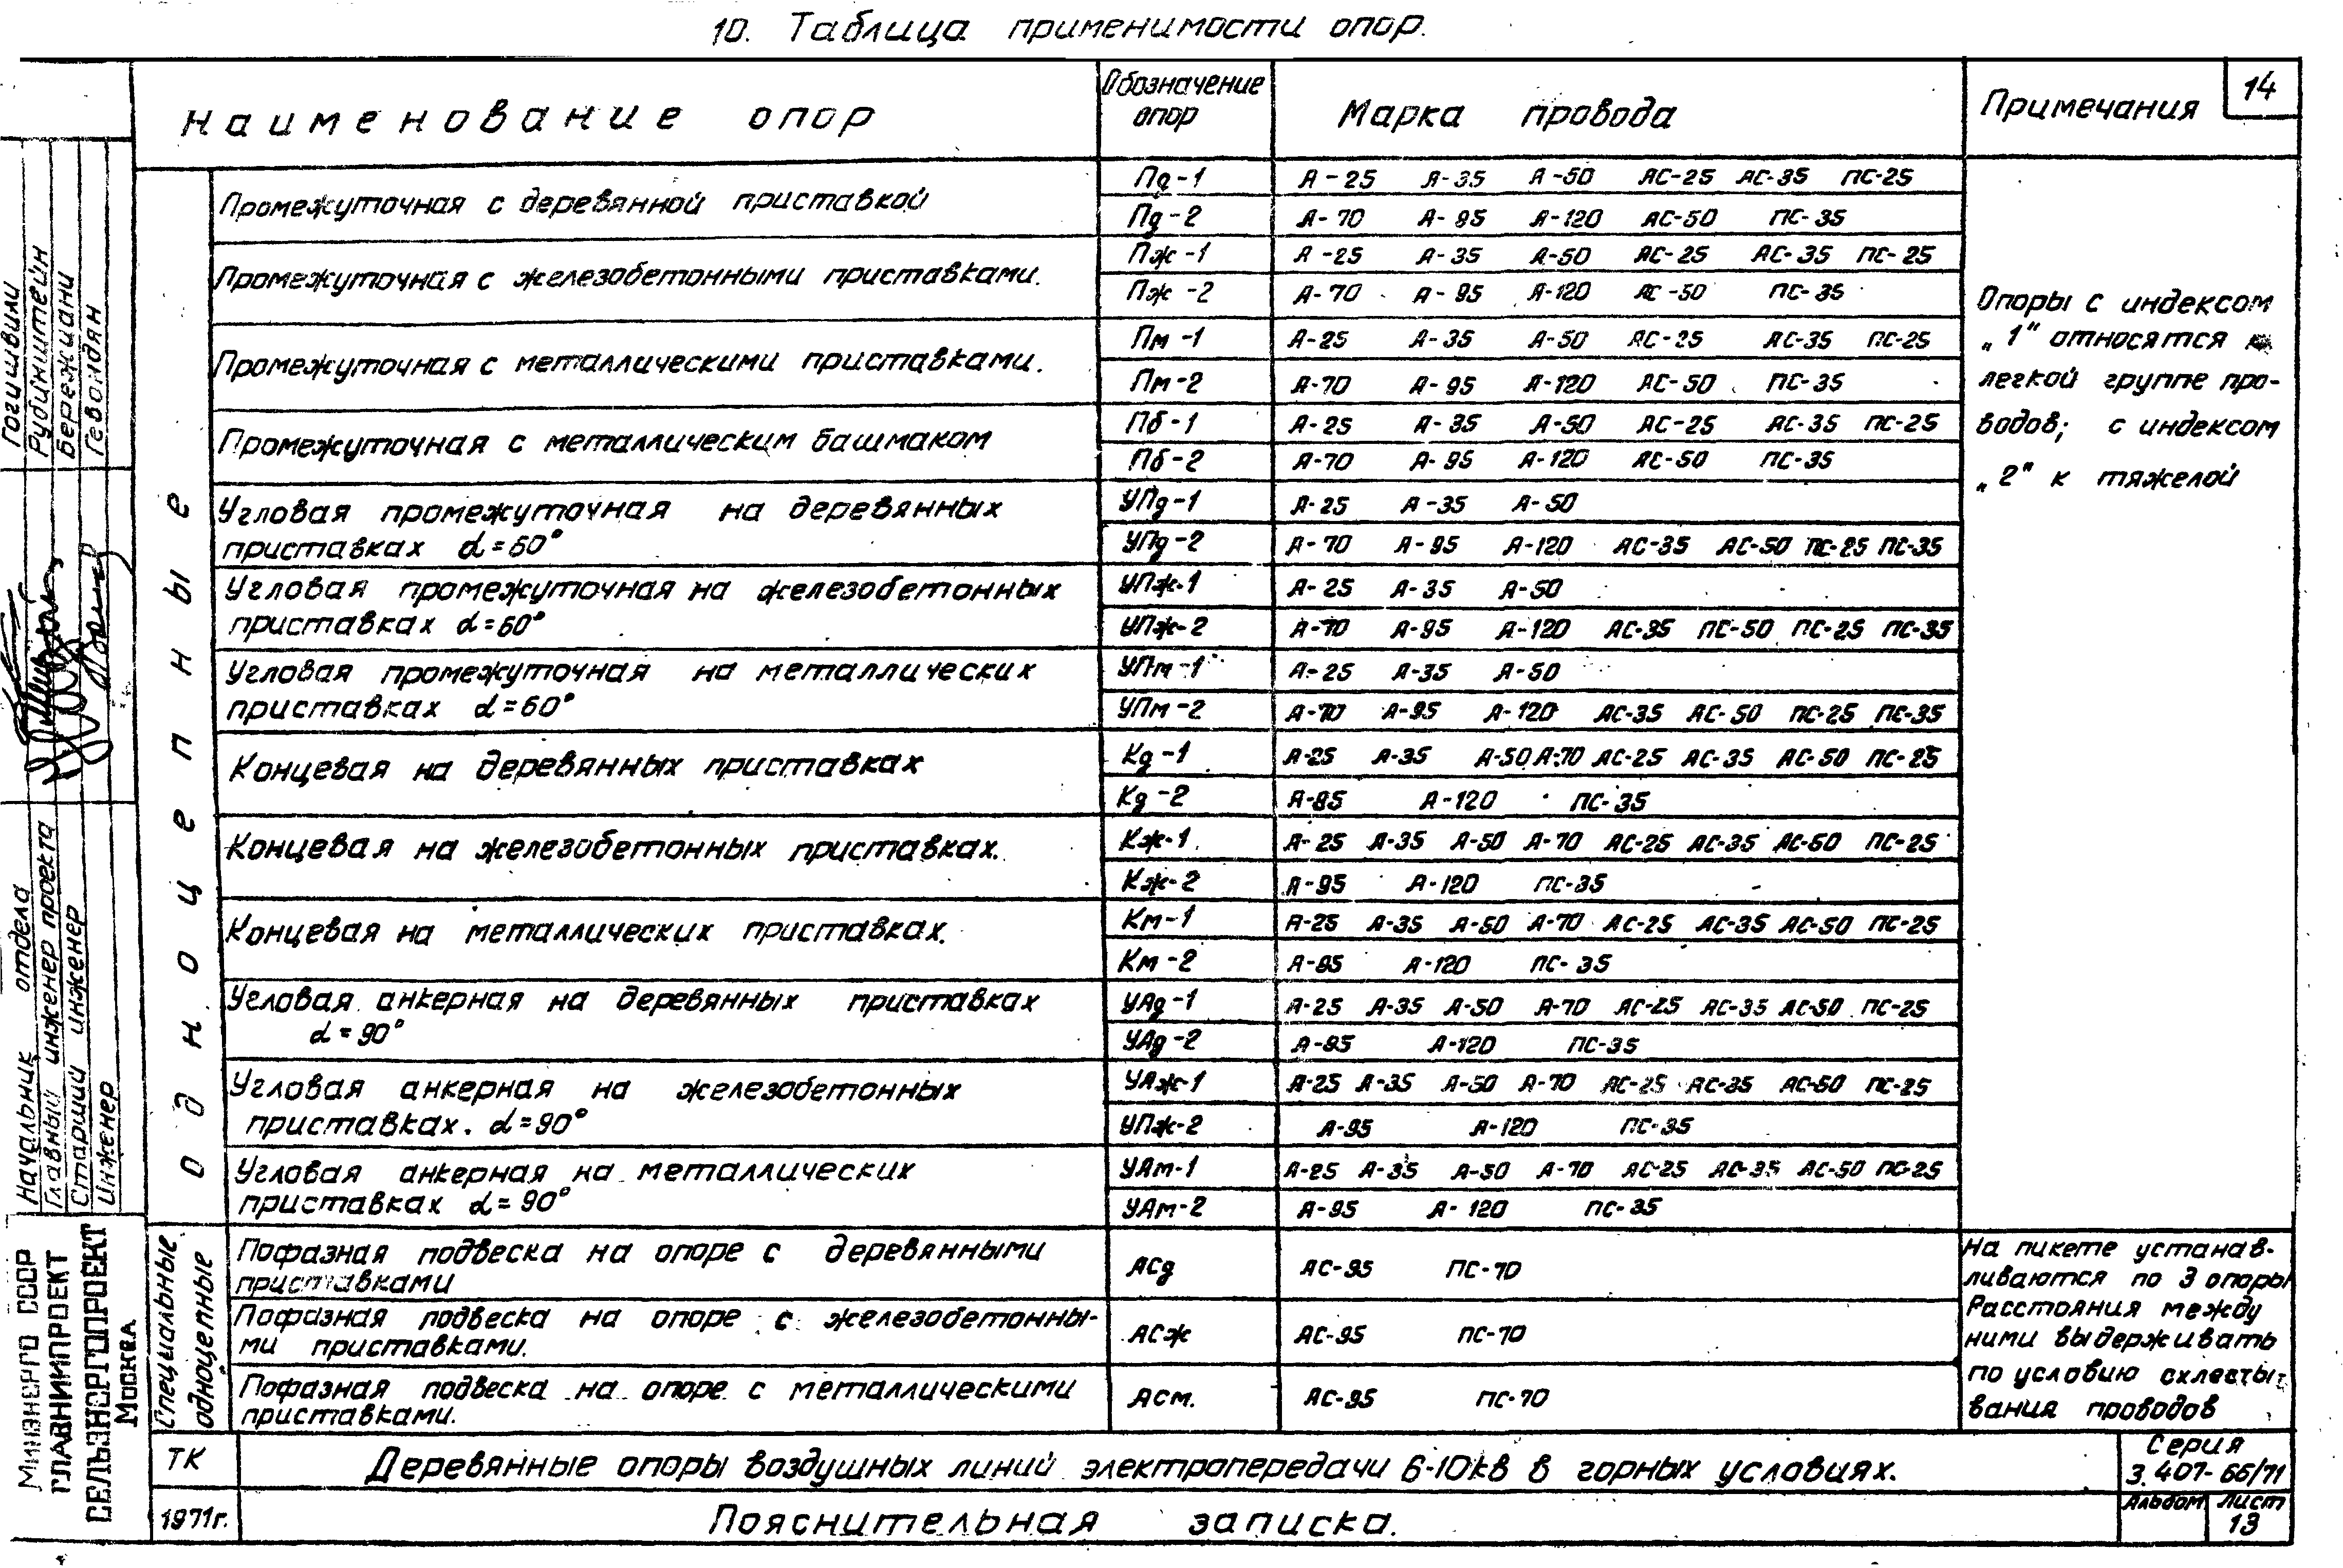 10. Таблица применимости опор.
14
Наименование опор
Обозначение
опор
Марка провода
Примечания
Одноцепные
Промежуточная с деревянной приставкой
Пд-1 А-25 А-35 А-50 АС-25 АС-35 ПС-25
Пд-2 А-70 А-95 А-120 АС-50 ПС-35
Промежуточная с железобетонными приставками.
Пж-1 А-25 А-35 А-50 АС-25 АС-35 ПС-25
Пж-2 А-70 А-95 А-120 АС-50 ПС-35
Промежуточная с металлическими приставками.
Пм-1 А-25 А-35 А-50 АС-25 АС-35 ПС-25
Пм-2 А-70 А-95 А-120 АС-50 ПС-35
Промежуточная с металлическим башмаком
Пб-1 А-25 А-35 А-50 АС-25 АС-35 ПС-25
Пб-2 А-70 А-95 А-120 АС-50 ПС-35
Угловая промежуточная на деревянных
приставках α=60°
УПд-1 А-25 А-35 А-50
УПд-2 А-70 А-95 А-120 АС-35 АС-50 ПС-25 ПС-35
Угловая промежуточная на железобетонных
приставках α=60°
УПж-1 А-25 А-35 А-50
УПж-2 А-70 А-95 А-120 АС-35 ПС-50 ПС-25 ПС-35
Угловая промежуточная на металлических
приставках α=60°
УПм-1 А-25 А-35 А-50
УПм-2 А-70 А-95 А-120 АС-35 АС-50 ПС-25 ПС-35
Концевая на деревянных приставках
Кд-1 А-25 А-35 А-50 А-70 АС-25 АС-35 АС-50 ПС-25
Кд-2 А-95 А-120 ПС-35
Концевая на железобетонных приставках.
Кж-1 А-25 А-35 А-50 А-70 АС-25 АС-35 АС-50 ПС-25
Кж-2 А-95 А-120 ПС-35
Концевая на металлических приставках.
Км-1 А-25 А-35 А-50 А-70 АС-25 АС-35 АС-50 ПС-25
Км-2 А-95 А-120 ПС-35
Угловая анкерная на деревянных приставках
α=90°
УАд-1 А-25 А-35 А-50 А-70 АС-25 АС-35 АС-50 ПС-25
УАд-2 А-95 А-120 ПС-35
Угловая анкерная на железобетонных
приставках. α=90°
УАж-1 А-25 А-35 А-50 А-70 АС-25 АС-35 АС-50 ПС-25
УПж-2 А-95 А-120 ПС-35
Угловая анкерная на металлических
приставках α=90°
УАм-1 А-25 А-35 А-50 А-70 АС-25 АС-35 АС-50 ПС-25
УАм-2 А-95 А-120 ПС-35
Опоры с индексом
„1" относятся к
легкой группе про-
водов; с индексом
„2" к тяжелой
Специальные
одноцепные
Пофазная подвеска на опоре с деревянными
приставками
АСд АС-95 ПС-70
Пофазная подвеска на опоре с железобетонны-
ми приставками.
АСж АС-95 ПС-70
Пофазная подвеска на опоре с металлическими
приставками.
АСм. АС-95 ПС-70
На пикете устанав-
ливаются по 3 опоры
Расстояния между
ними выдерживать
по условию схлесты-
вания проводов
ТК
Деревянные опоры воздушных линий электропередачи 6-10кв в горных условиях.
Серия
3.407-66/71
1971г.
Пояснительная записка.
Альбом
Лист
13
Гогишвили
Рубинштейн
Бережиани
Гевондян
Начальник отдела
Главный инженер проекта
Старший инженер
Инженер
Минэнерго СССР
ГЛАВНИИПРОЕКТ
СЕЛЬЭНЕРГОПРОЕКТ
Москва